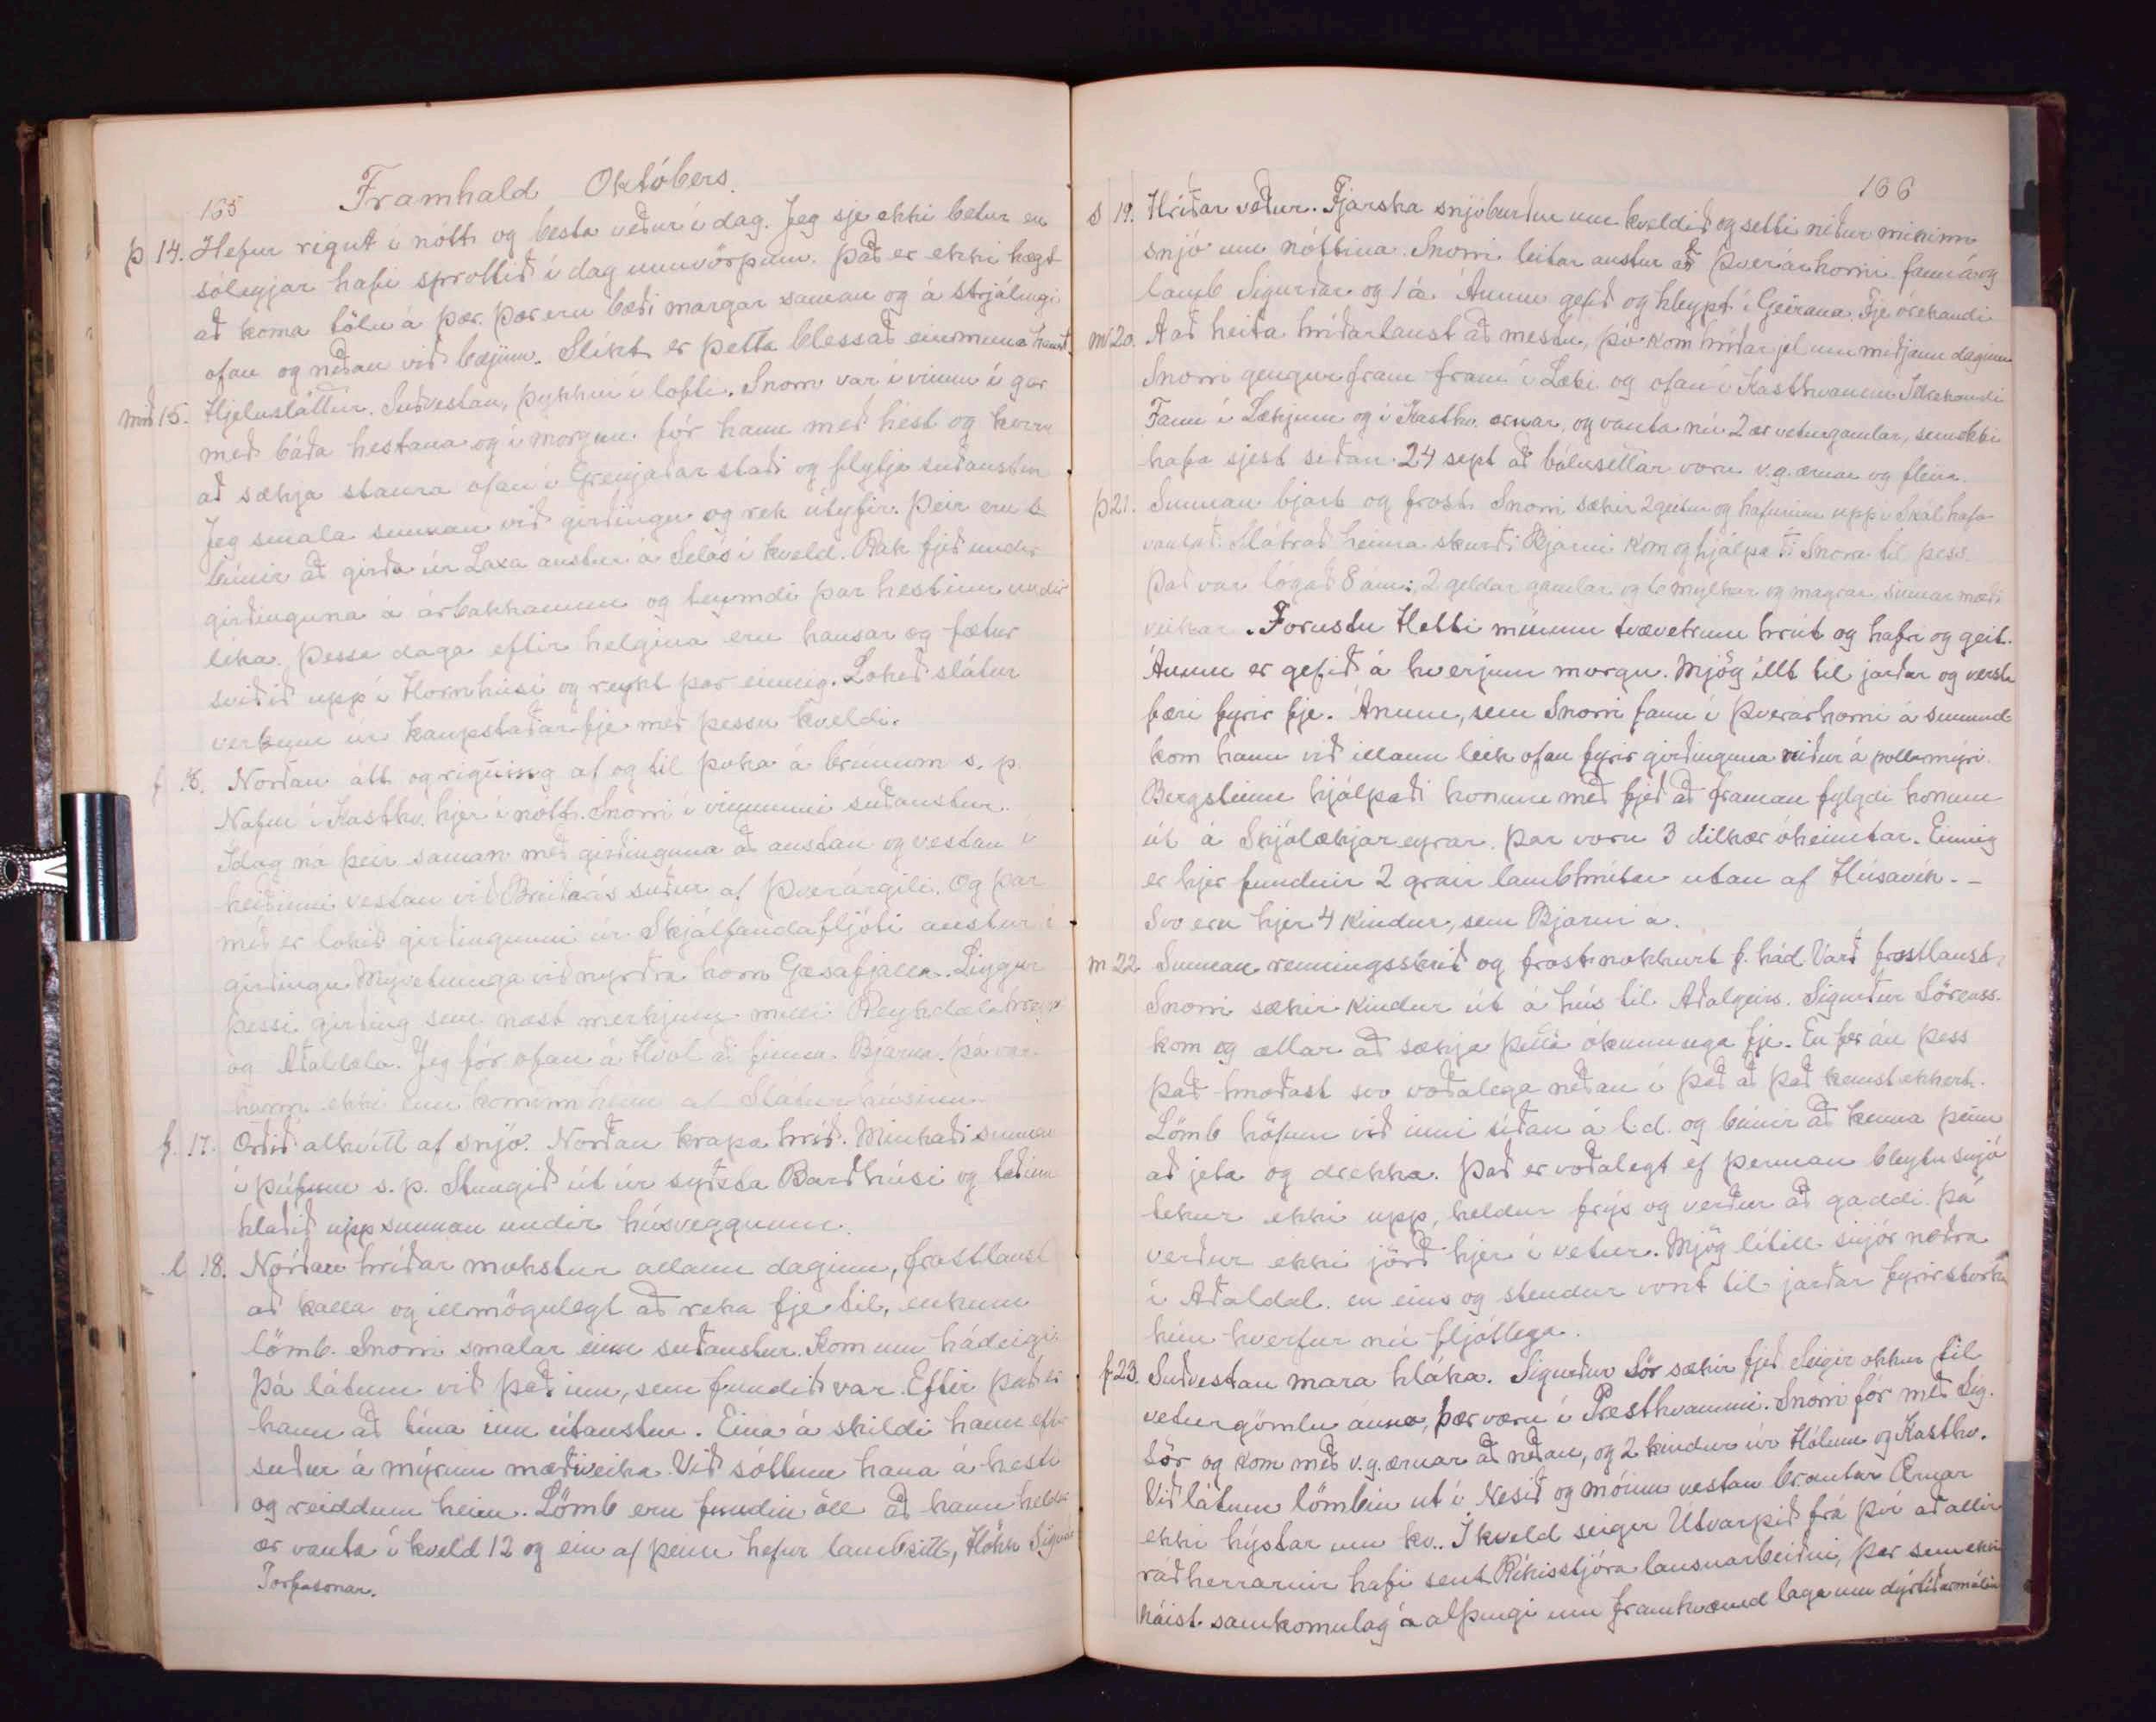 165
Framhald Októbers.
þ 14. Hefur rignt í nótt og besta veður í dag. Jeg sje ekki betur en
sóleyjar hafi sprottið í dag unnvörpum. Það er ekki hægt
að koma tölu á þær. Þær eru bæði margar saman og á strjálingi
ofan og neðan við bæjinn. Slíkt er þetta blessað einmuna haust.
mið 15. Hjelusláttur. Suðvestan, þykkni í lofti. Snorri var í vinnu í gær
með báða hestana og í morgun fór hann með hest og kerru
að sækja staura ofan í Grenjaðarstaði og flytja suðaustur
Jeg smala sunnan við girðingu og rek útyfir. Þeir eru
búnir að girða úr Laxá austur á Selás í kveld. Rak fjeð undir
girðinguna á árbakkanum og teymdi þar hestinn undir
líka. Þessa daga eftir helgina eru hausar og fætur
sviðið upp í Hornhúsi og reykt þar einnig. Lokið slátur
verkum úr kaupstaðarfje með þessu kveldi.
f 16. Norðan átt og rigning af og til þoka á brúnum s. p.
Nafni í Kasthv. hjer í nótt. Snorri í vinnunni suðaustur.
Ídag ná þeir saman með girðinguna að austan og vestan í
heiðinni vestan við Breiðaás suður af Þverárgili. Og þar
með er lokið girðingunni úr Skjálfandafljóti austur í
girðingu Mývetninga við nyrðra horn Gæsafjalla. Liggur
þessi girðing sem næst merkjum milli Reykdælahrepps
og Aðaldæla. Jeg fór ofan á Hvol að finna Bjarna. Þá var
hann ekki enn kominn heim af Sláturhúsinu.
f. 17. Orðið alhvítt af snjó. Norðan krapa hríð. Minkaði sunnan
í þúfum s. p. Stungið út úr syðsta Barðhúsi og taðinu
hlaðið upp sunnan undir húsveggnum.
l 18. Norðan hríðar mokstur allann daginn, frostlaust
að kalla og illmögulegt að reka fje til, einkum
lömb. Snorri smalar einn suðaustur. Kom um hádeigi
Þá látum við það inn, sem fundið var. Eftir það er
hann að tína inn útaustur. Eina á skildi hann eftir
suður á mýrum mæðiveika. Við sóttum hana á hesti
og reiddum heim. Lömb eru fundin öll að hann heldur
ær vanta í kveld 12 og ein af þeim hefur lambzitt, Höku Sigurðr
Torfasonar.
166
s 19. Hríðar veður. Fjarska snjóburður um kveldið og setti niður mikinn
snjó um nóttina. Snorri leitar austur að Þverárhorni fann á og
lamb Sigurðar og 1 á. Ánum gefið og hleypt í Geirana. Fje órekandi
m 20. Að heita hríðarlaust að mestu, þó kom hríðar jel um miðjann daginn
Snorri gengur fram fram í Læki og ofan í Kasthvamm. Fje órekandi
Fann í Lækjum og í Kasthv. ærnar, og vanta nú 2 ær veturgamlar, sem ekki
hafa sjest síðan 24 sept að bólusettar voru v.g. ærnar og fleira.
þ 21. Sunnan bjart og frost. Snorri sækir 2 geitur og hafurinn upp í Skál hafa
vantað. Slátrað heima skurði Bjarni kom og hjálpaði Snorra til þess.
Það var lógað 8 ám: 2 geldar gamlar og 6 mylkar og magrar, sumar mæði
veikar. Forustu Hetti mínum tvævetrum hrút og hafri og geit.
Ánum er gefið á hverjum morgn. Mjög íllt til jarðar og versta
færi fyrir fje. Ánum, sem Snorri fann í Þverárhorni á sunnud
kom hann við illann leik ofan fyrir girðinguna niður á pollamýri.
Bergsteinn hjálpaði honum með fjeð að framan fylgdi honum
út á Skjólækjareyrar. Þar voru 3 dilkær óheimtar. Einnig
er hjer fundnir 2 gráir lambhrútar utan af Húsavík. -
Svo eru hjer 4 kindur, sem Bjarni á.
m 22 Sunnan renningsskrið og frost nokkurt f. hád Varð frostlaust,
Snorri sækir kindur út á hús til Aðalgeirs. Sigurður Lörenss.
kom og ætlar að sækja þetta ókunnuga fje. En fer án þess
það hnoðast svo voðalega neðan í það að það kemst ekkert.
Lömb höfum við inni síðan á l.d. og búnir að kenna þeim
að jeta og drekka. Það er voðalegt ef þennan bleytu snjó
tekur ekki upp, heldur frýs og verður að gaddi. Þá
verður ekki jörð hjer í vetur. Mjög lítill snjór neðra
í Aðaldal. en eins og stendur vont til jarðar fyrir storku
hún hverfur nú fljótlega.
f 23. Suðvestan mara hláka. Sigurður Lör sækir fjeð. Seigir okkur til
veturgömlu ánna, þær væru í Presthvammi. Snorri fór með Sig.
Lör og kom með v.g. ærnar að neðan, og 2 kindur úr Hólum og Kasthv.
Við látum lömbin út í Nesið og móinn vestan brautar Ærnar
ekki hýstar um kv.. Í kveld seiger Útvarpið frá því að allir
ráðherrarnir hafi sent Ríkisstjóra lausnarbeiðni, þar sem ekki
náist samkomulag á alþingi um framkvæmd laga um dýrtíðarmálin